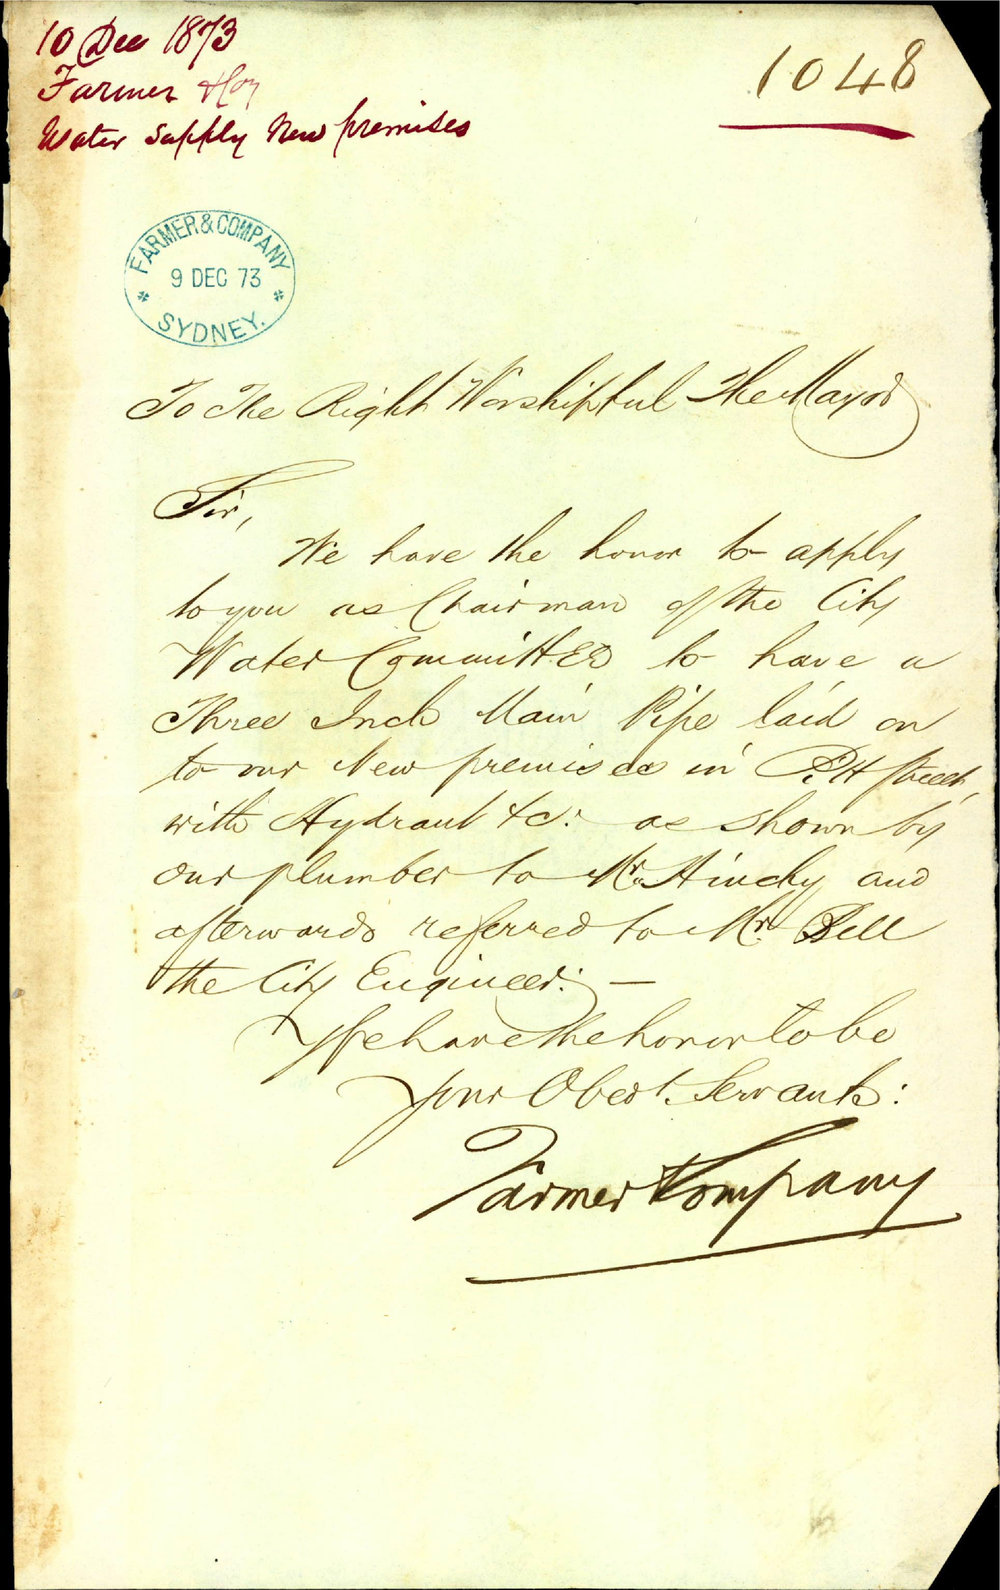 10 Dec 1873
Farmer & Coy
Water Supply New premises
1048
FARMER & COMPANY
9 DEC 73
SYDNEY.
To The Right Worshipful The Mayor
Sir,
We have the honor to apply
to you as Chairman of the City
Water Committee to have a
Three Inch Main Pipe laid on
to our New premises in Pitt Street,
with Hydrant &c: as shown by
our plumber to Mr. and
afterwards referred to Mr. Bell
the City Engineer: —
We have the honor to be
your Obedt. Servants:
Farmer & Company